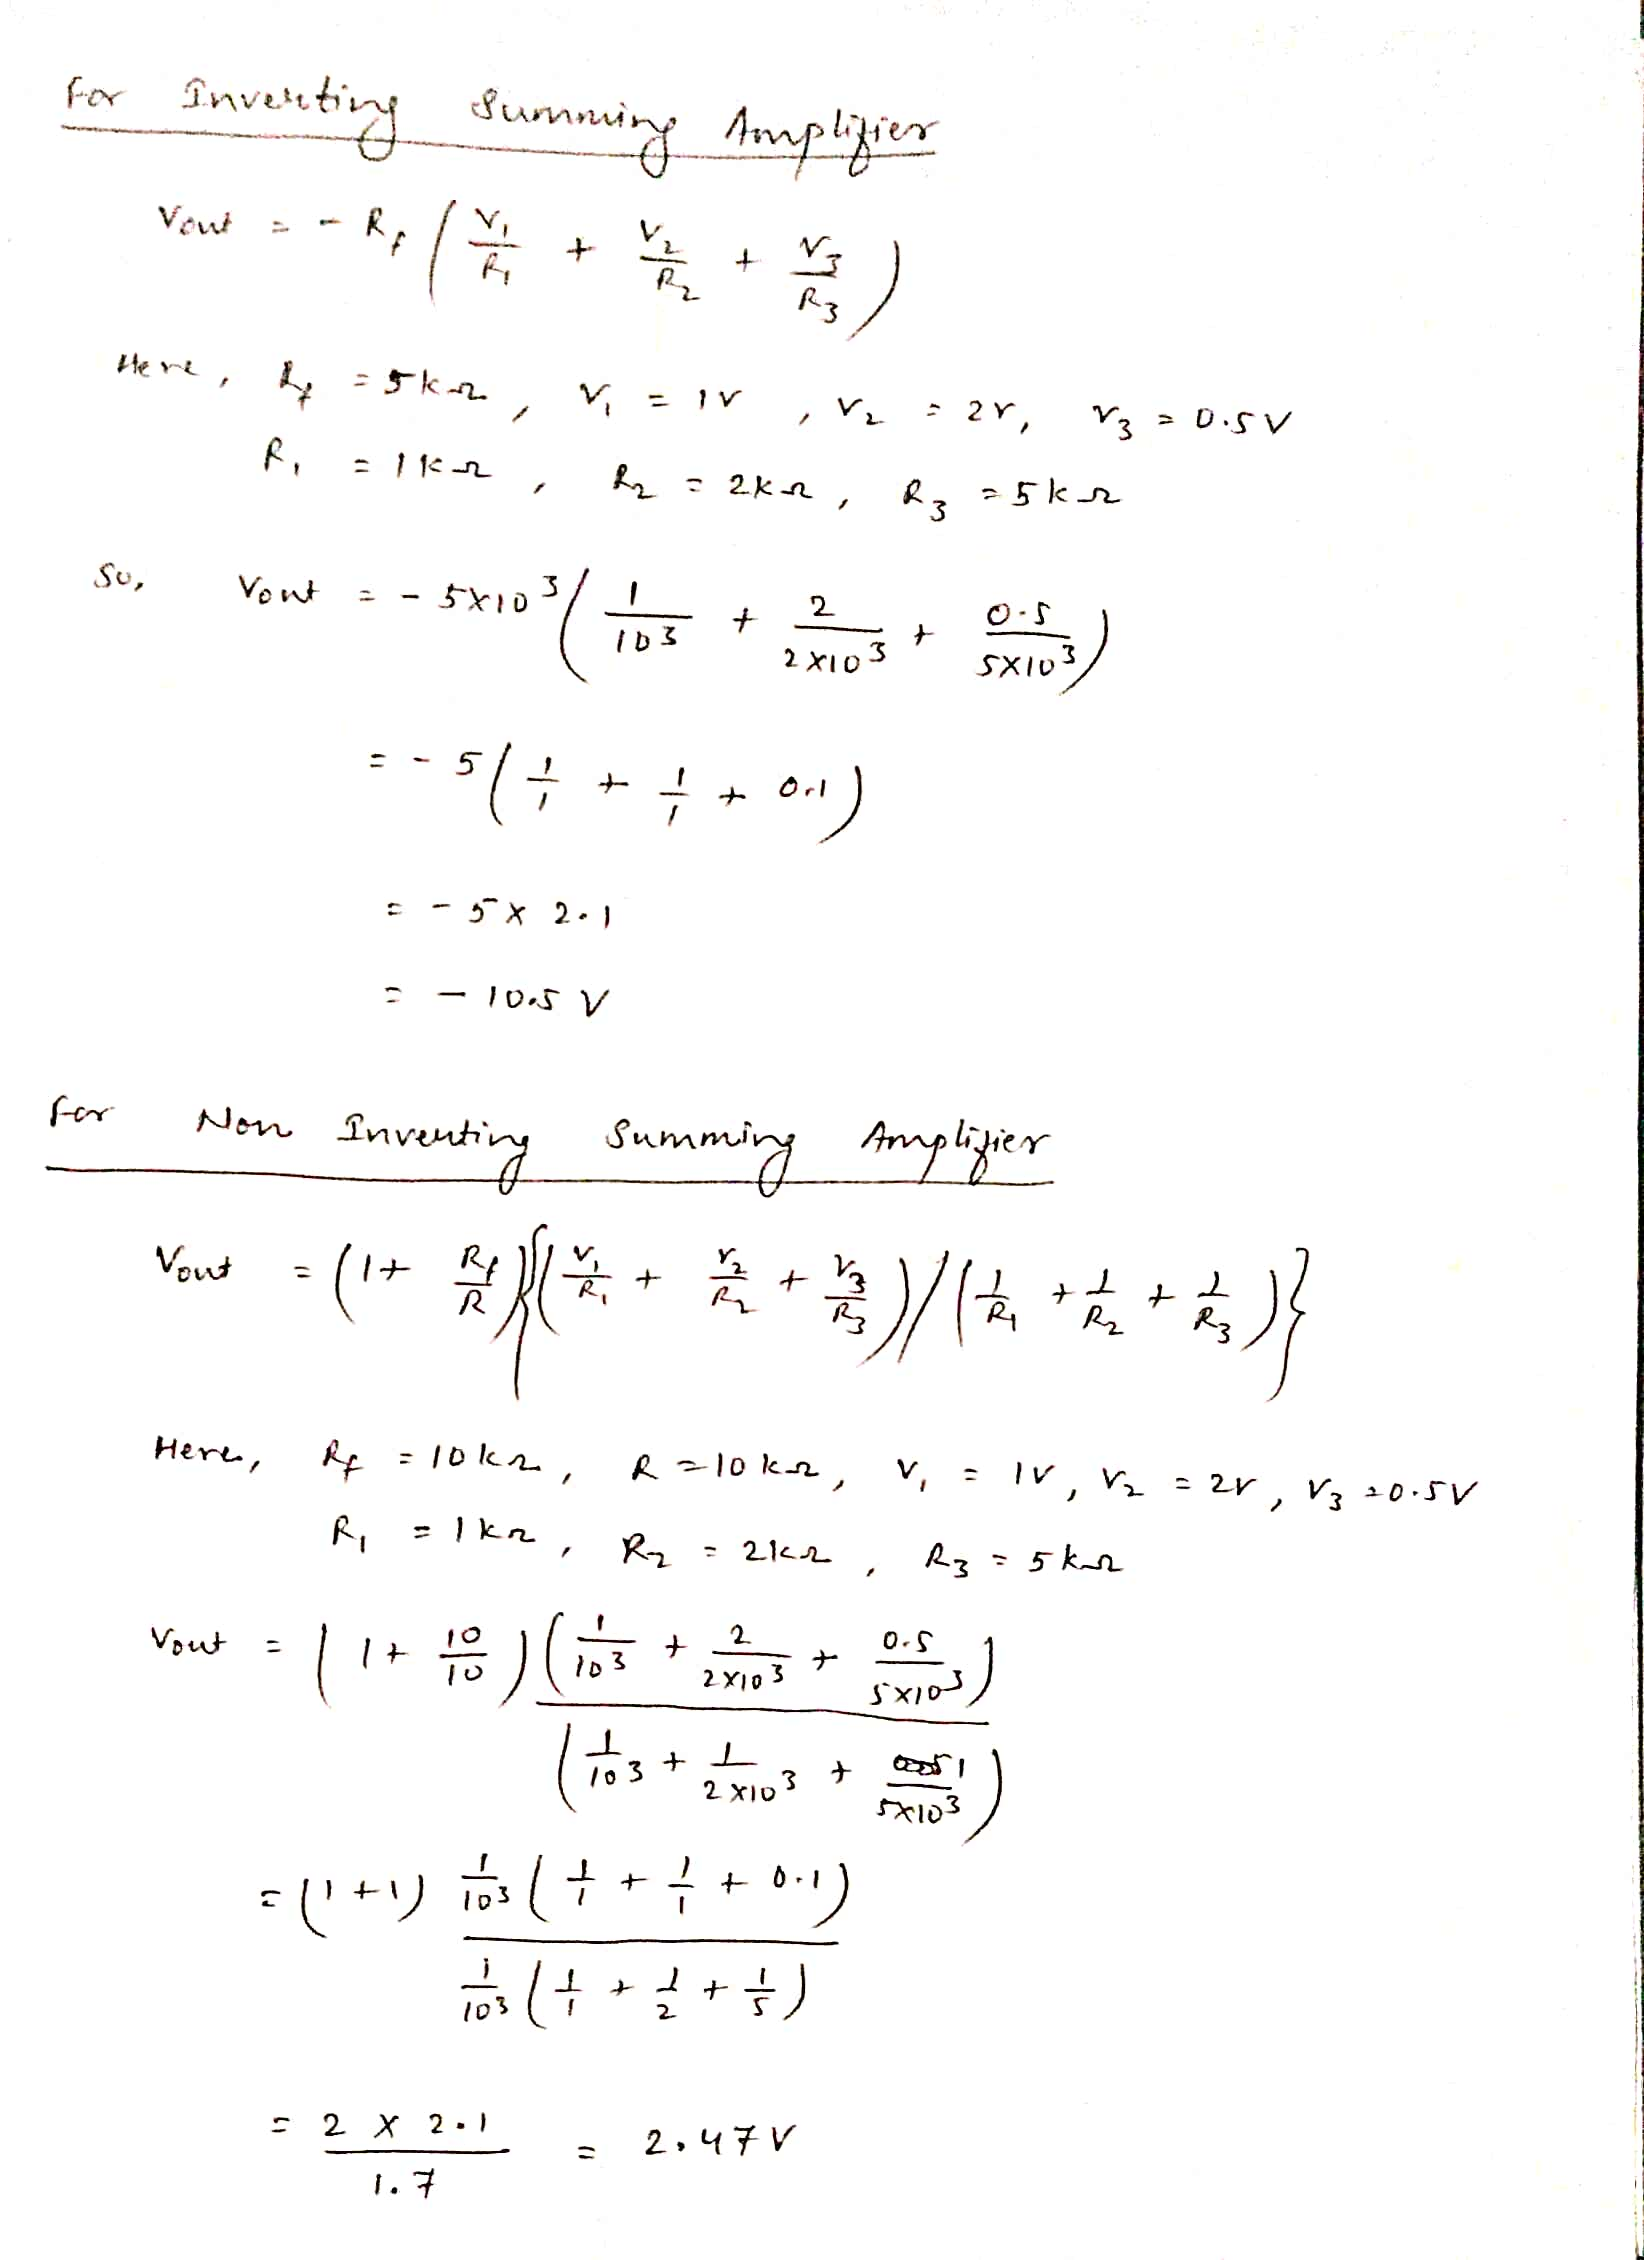 For Inverting Summing Amplifier
Vout = - Rf ( V1/R1 + V2/R2 + V3/R3 )
Here, Rf = 5kΩ, V1 = 1V, V2 = 2V, V3 = 0.5V
R1 = 1kΩ, R2 = 2kΩ, R3 = 5kΩ
So, Vout = - 5×10³ ( 1/10³ + 2/2×10³ + 0.5/5×10³ )
= - 5 ( 1/1 + 1/1 + 0.1 )
= - 5 × 2.1
= - 10.5 V
For Non Inverting Summing Amplifier
Vout = (1 + Rf/R) { ( V1/R1 + V2/R2 + V3/R3 ) / ( 1/R1 + 1/R2 + 1/R3 ) }
Here, Rf = 10kΩ, R = 10kΩ, V1 = 1V, V2 = 2V, V3 = 0.5V
R1 = 1kΩ, R2 = 2kΩ, R3 = 5kΩ
Vout = ( 1 + 10/10 ) ( 1/10³ + 2/2×10³ + 0.5/5×10³ )
( 1/10³ + 1/2×10³ + 1/5×10³ )
= (1+1) 1/10³ ( 1/1 + 1/1 + 0.1 )
1/10³ ( 1/1 + 1/2 + 1/5 )
= 2 × 2.1 / 1.7 = 2.47 V